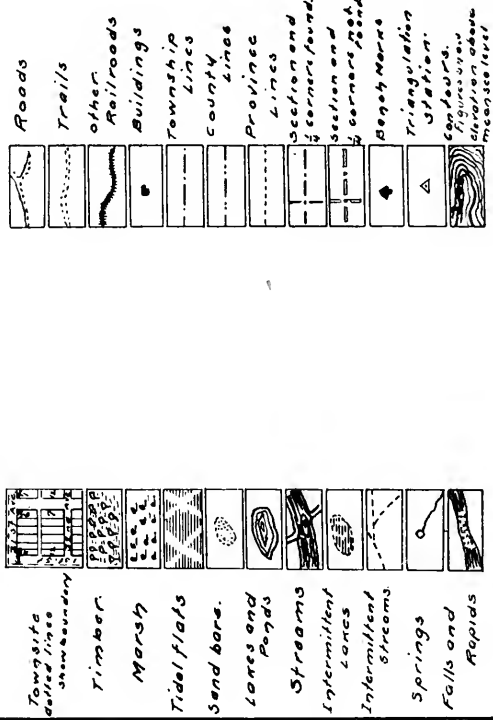 Townsite
dotted lines
show boundary
Timber.
Marsh
Tidal flats
Sand bars.
Lakes and
Ponds
Streams
Intermittent
Lakes
Intermittent
streams.
Springs
Falls and
Rapids
Roads
Trails
other
Railroads
Buildings
Township
Lines
County
Lines
Province
Lines
Section and
¼ corners found.
Section and
¼ corners not
found
Bench Marks
Triangulation
Station.
Contours.
Figures show
elevation above
mean sea level